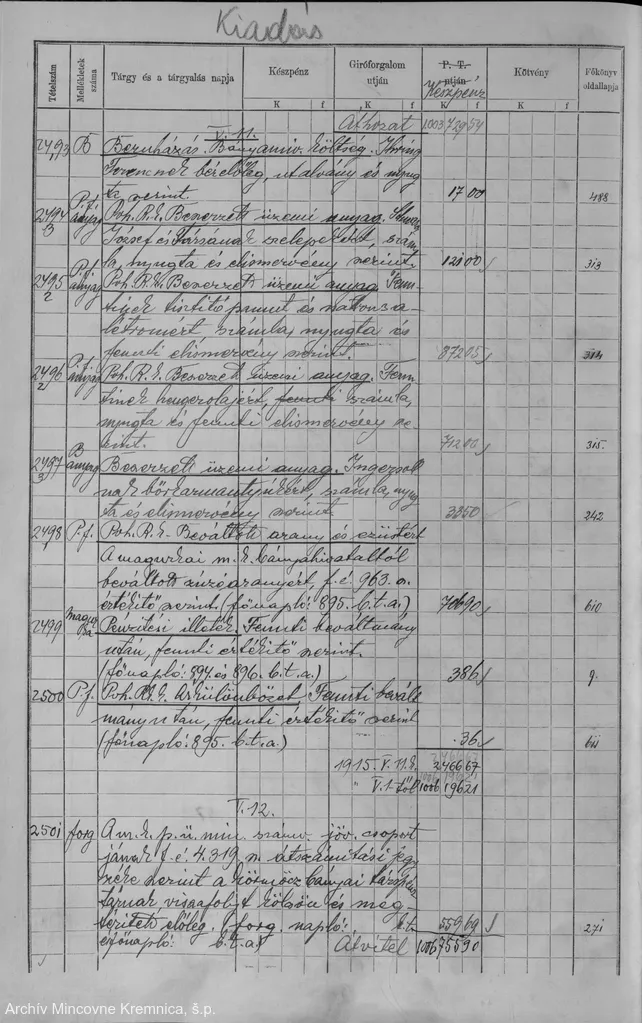 Kiadás
Tételszám
Mellékletek száma
Tárgy és a tárgyalás napja
Készpénz
Giróforgalom utján
P. T. utján
Készpénz
Kötvény
Főkönyv oldallapja
K f K f K f K f
V. 11. Áthozat 1003 729 54
2493 B Beruházás. Bányamiv. költség. Ihring
Ferencnek bérelőleg, utalvány és nyug
ta szerint. 17 00 488
2494 P.f. anyag Poh. R.k. Beszerzett üzemi anyag.
József és Társának szelepekért, szám
la, nyugta és elismervény szerint. 120 00 313
2495 P.f. anyag Poh. R.k. Beszerzett üzemi anyag. Fenn
tinek tisztító pamut és
számla, nyugta és
fennti elismervény szerint. 872 05 314
2496 P.f. anyag Poh. R.k. Beszerzett üzemi anyag. Fenn
tinek hengerolajért, fennti számla,
nyugta és fennti elismervény sze
rint. 712 00 315.
2497 B anyag Beszerzett üzemi anyag. Ingersoll
nak bőrkarmantyúkért, számla, nyug
ta és elismervény szerint 33 50 242
2498 P.f. Poh. R.k. Beváltott arany és ezüstért
A magurkai m. k. bányahivataltól
beváltott zúzóaranyért, f. é. 963. a.
értékitő szerint. (főnapló: 895. b.t.a.) 706 90 610
2499 Magur ka Pénzítési illeték. Fennti beváltmány
után, fennti értékitő szerint.
(főnapló: 894. és 896. b.t.a.) 3 86 9.
2500 P.f. Poh. R.k. Árkülönbözet. Fennti bevált
mány után, fennti értékitő szerint
(főnapló: 895. b.t.a.) 36 611
1915. V. 11. é. 2466 67
" V. 1. től 1006 196 21
V. 12.
2501 forg A m. k. p. ü. min. számv. jöv. csoport
jának f. é. 4.319. n. átszámítási jegy
zéke szerint a körmöczbányai társpénz
tárnak visszafizet. kölcsön és meg
térített előleg. (forg. napló: b.t. 559 69 271
és főnapló: b.t.a.) Átvitel 1006 755 90
Archív Mincovne Kremnica, š.p.